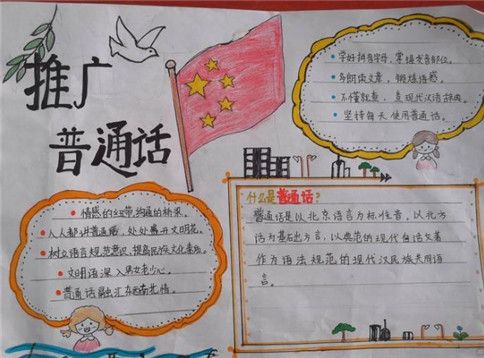 推广
普通话
学好拼音字母，掌握发音部位。
多朗读文章，锻炼语感。
不懂就意，查现代汉语词典。
坚持每天使用普通话。
情感的纽带，沟通的桥梁。
人人都讲普通话，处处盛开文明花。
树立语言规范意识，提高民族文化素质。
文明语深入男女老少心。
普通话融汇东西南北情。
什么是普通话？
普通话是以北京语言为标准音，以北方
话为基础出方言，以典范的现代白话文著
作为语法规范的现代汉民族共同语
言。